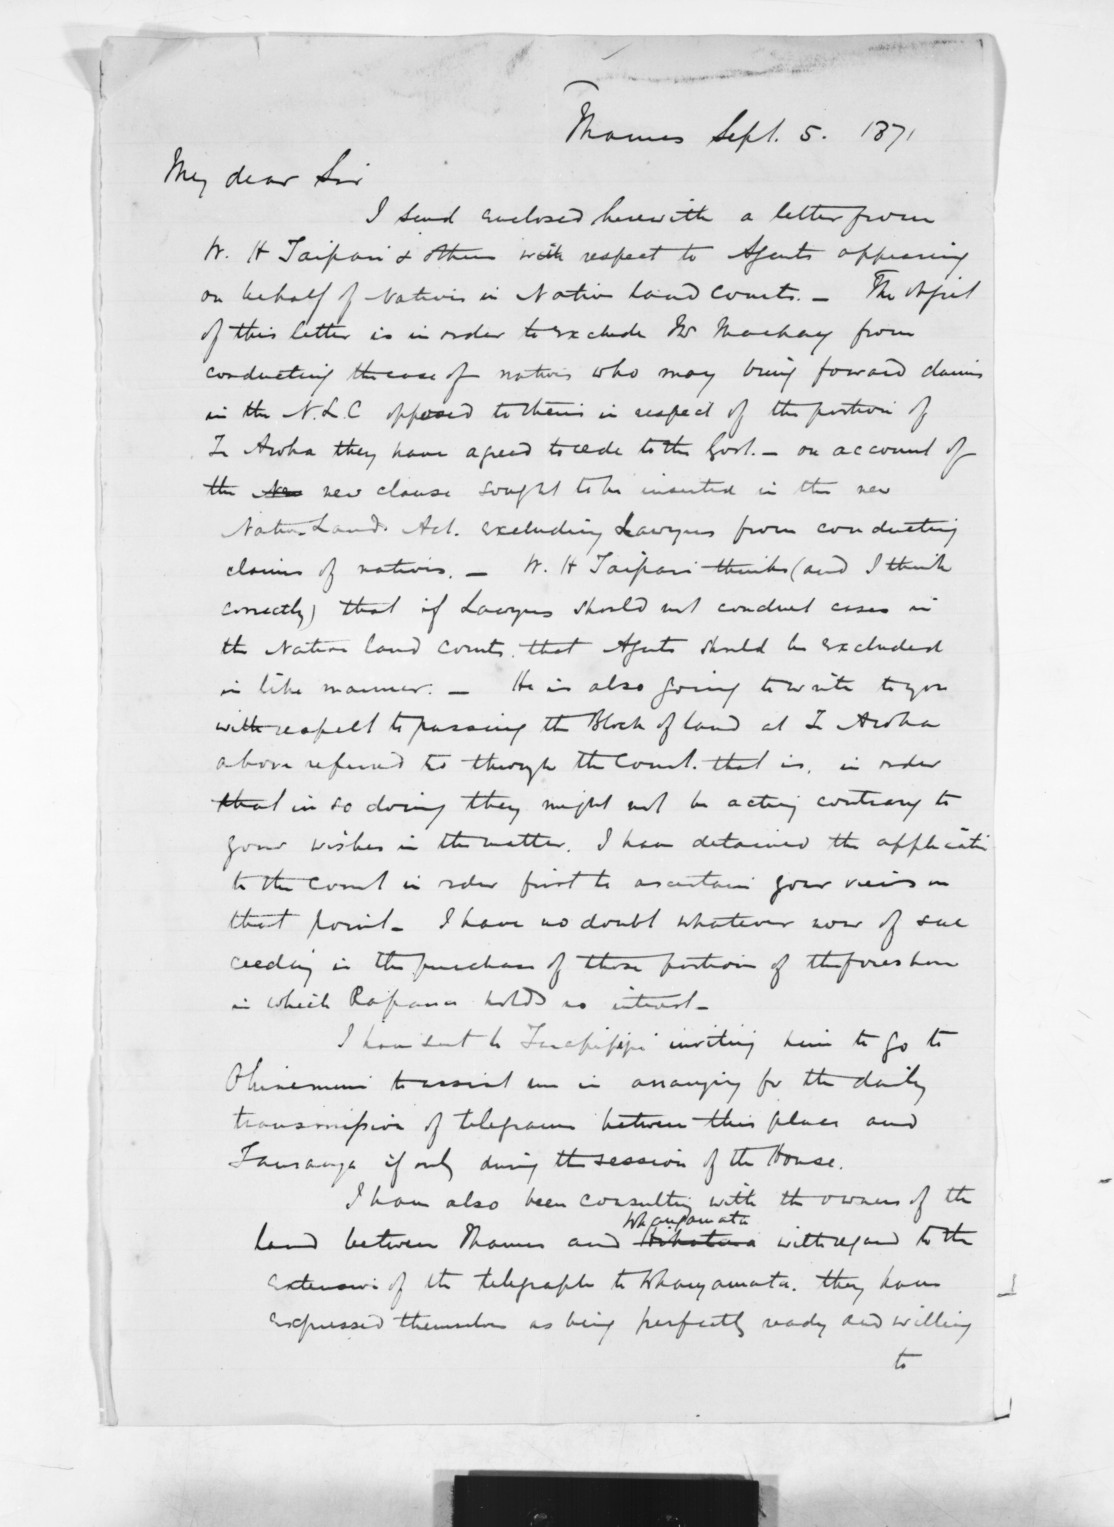 Thames Sept. 5. 1871
My dear Sir
I send enclosed herewith a letter from
W. H Taipari & others with respect to Agents appearing
on behalf of Natives in Native Land Courts. — The object
of this letter is in order to exclude Mr Mackay from
conducting the case of natives who may bring forward claims
in the N.L.C opposed to theirs in respect of the portion of
Te Aroha they have agreed to cede to the Govt. — on account of
the new clause sought to be inserted in the new
Native Lands Act. excluding Lawyers from conducting
claims of natives. — W. H Taipari thinks (and I think
correctly) that if Lawyers should not conduct cases in
the Native land Courts. that Agents should be excluded
in like manner. — He is also going to write to you
with respect to passing the Block of land at Te Aroha
above referred to through the Court. that is. in order
that in so doing they might not be acting contrary to
your wishes in the matter. I have detained the applicati
to the Court in order first to ascertain your views on
that point — I have no doubt whatever now of suc
ceeding in the purchase of those portions of the foreshore
in which Rapana holds no interest —
I have sent to Te inviting him to go to
Ohinemuri to assist me in arranging for the daily
transmission of telegrams between this place and
Tauranga if only during the session of the House.
I have also been consulting with the owners of the
Whangamata
land between Thames and with regard to the
extension of the telegraph to Whangamata. they have
expressed themselves as being perfectly ready and willing
to